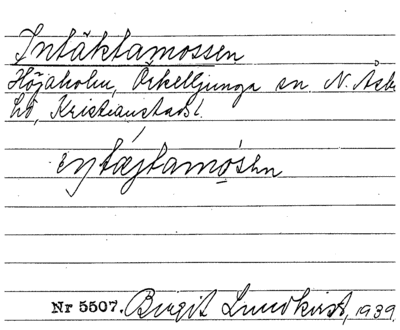 Intäktamossen
Höjaholm, Örkelljunga sn N. Åsbo
hd, Kristianstads l.
Nr 5507. Birgit Lundkvist, 1939.